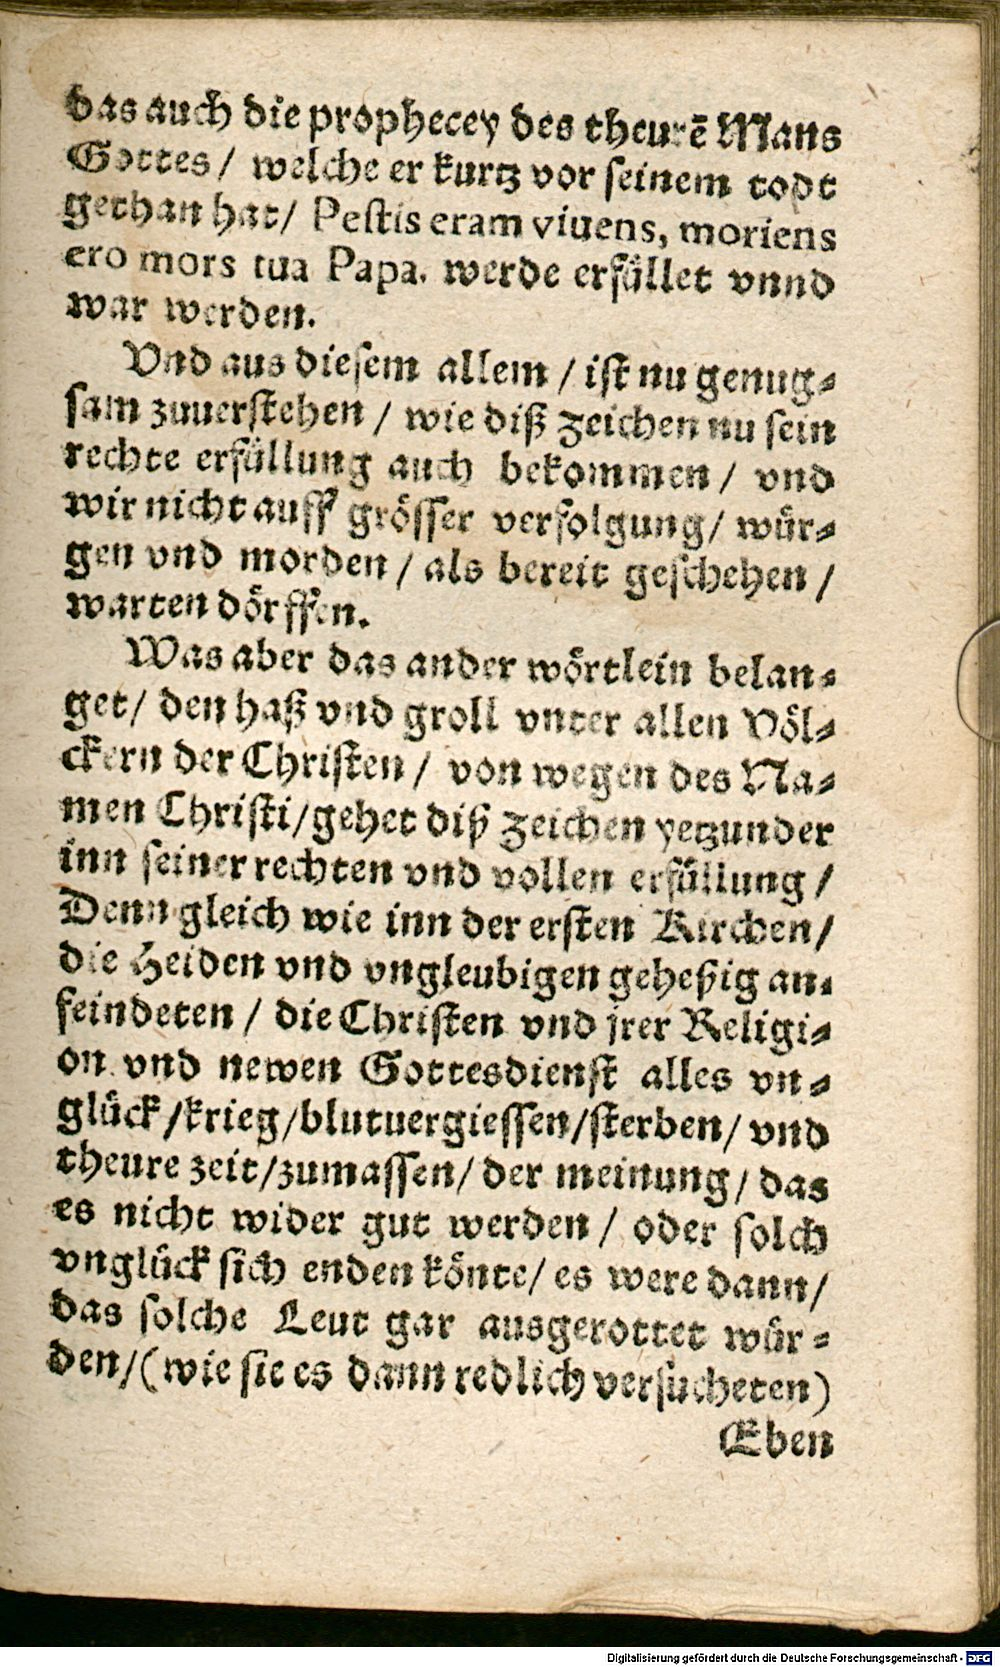 das auch die prophecey des theurē Mans
Gottes/ welche er kurtz vor seinem todt
gethan hat/ Pestis eram viuens, moriens
ero mors tua Papa. werde erfüllet vnnd
war werden.
Vnd aus diesem allem / ist nu genug-
sam zuuerstehen / wie diß zeichen nu sein
rechte erfüllung auch bekommen / vnd
wir nicht auff grösser verfolgung/ wür-
gen vnd morden / als bereit geschehen /
warten dörffen.
Was aber das ander wörtlein belan-
get/ den haß vnd groll vnter allen Völ-
ckern der Christen / von wegen des Na-
men Christi/gehet diß zeichen yetzunder
inn seiner rechten vnd vollen erfüllung /
Denn gleich wie inn der ersten Kirchen/
die Heiden vnd vngleubigen geheßig an-
feindeten / die Christen vnd jrer Religi-
on vnd newen Gottesdienst alles vn-
glück/krieg/blutuergiessen/sterben/ vnd
theure zeit/zumassen/ der meinung/ das
es nicht wider gut werden / oder solch
vnglück sich enden könte/ es were dann/
das solche Leut gar ausgerottet wür-
den/(wie sie es dann redlich versucheten)
Eben
Digitalisierung gefördert durch die Deutsche Forschungsgemeinschaft - DFG